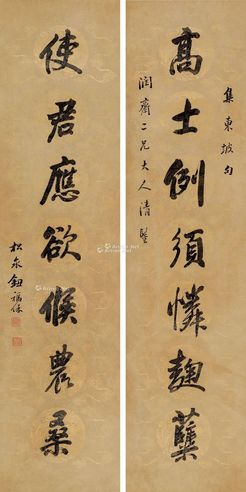 集東坡句
高士例須憐麴糵
潤齋二兄大人清鑒
使君應欲候農桑
松泉鈕福保